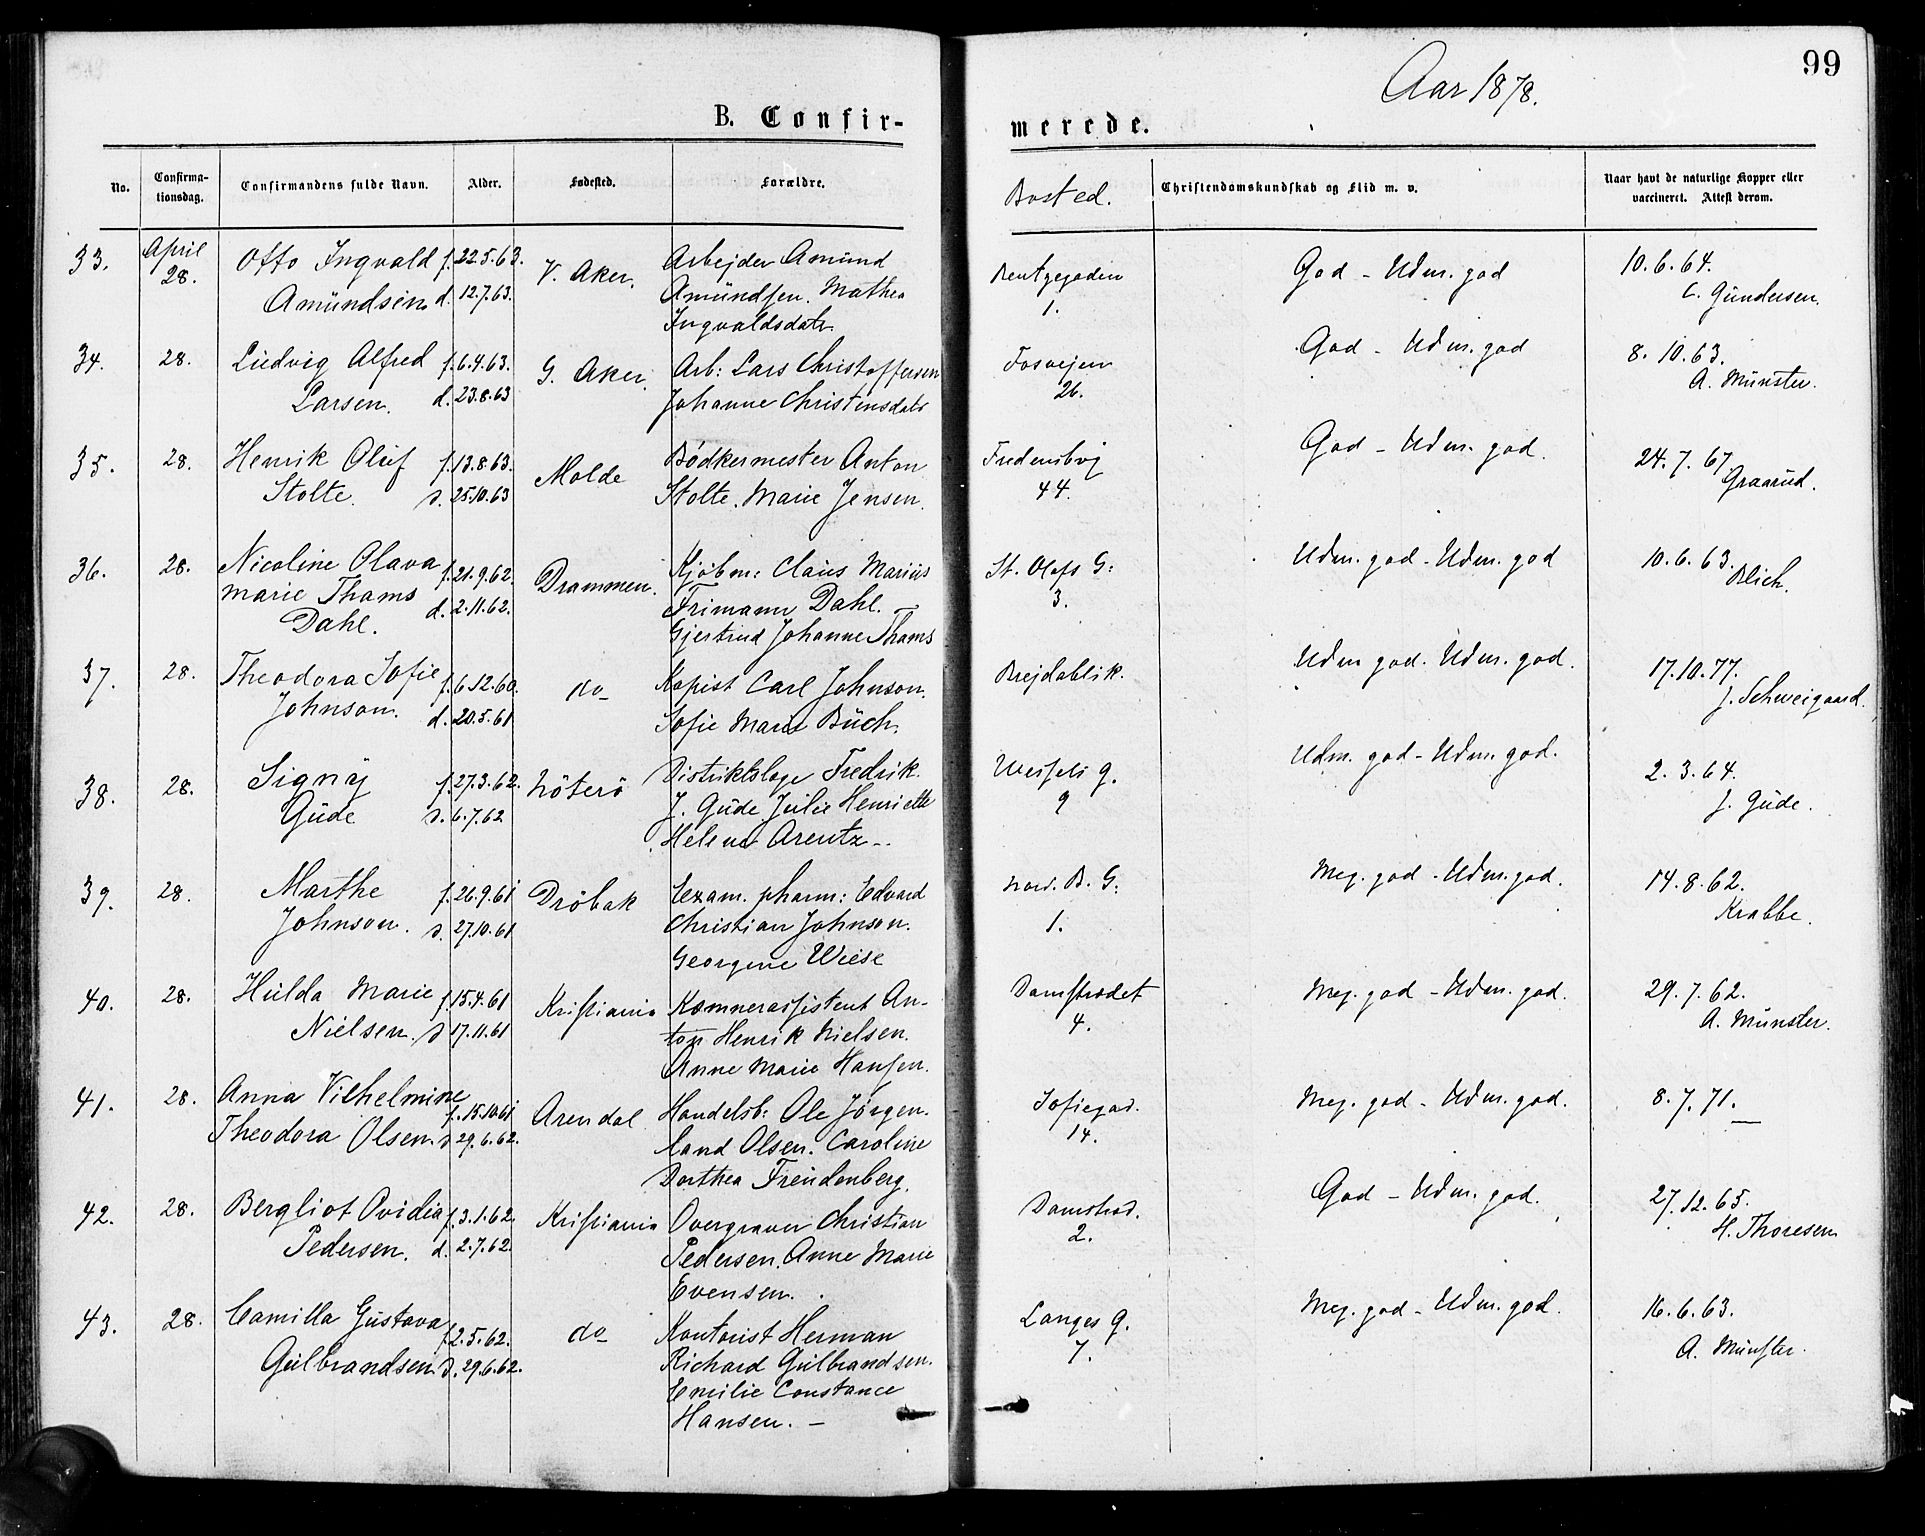 99
Aar 1878.
B. Confir-
merede.
No.
Confirma-
tionsdag.
Confirmandens fulde Navn.
Alder.
Fødested.
Forældre.
Bosted.
Christendomskundskab og Flid m. v.
Naar havt de naturlige Kopper eller
vaccineret. Attest derom.
33. April 28. Otto Ingvald Amundsen f. 22.5.63. d. 12.7.63. V. Aker.
Arbejder Amund
Amundsen. Mathea
Ingvaldsdatr.
1.
God - Udm. god
10.6.64.
C. Gundersen.
34. 28. Ludvig Alfred Larsen. f. 6.4.63. d. 23.8.63 G. Aker.
Arb: Lars Christoffersen
Johanne Christensdatr
Fosvejen
26.
God - Udm. god
8.10.63.
A. Münster.
35. 28. Henrik Oluf Stolte. f. 13.8.63. d. 25.10.63 Molde
Bødkermester Anton
Stolte. Marie Jensen.
Fredensbvj
44.
God - Udm. god.
24.7.67.
Graarud.
36. 28. Nicoline Olava Marie Thams Dahl. f. 21.9.62. d. 2.11.62. Drammen.
Kjøbm: Claus Marius
Frimann Dahl.
Gjertrud Johanne Thams
St. Olafs G:
3.
Udm. god - Udm. god
10.6.63.
Blich.
37. 28. Theodora Sofie Johnson. f. 6.12.60. d. 20.5.61 do
Kopist Carl Johnson.
Sofie Marie Buch.
Brejdablik.
Udm god. Udm. god.
17.10.77.
J. Schweigaard.
38. 28. Signy Gude f. 27.3.62. d. 6.7.62 Nöterö
Distriktslæge Fredrik
J. Gude Julie Henriette
Helene Arentz -
Wessels g.
9
Udm. god - Udm. god.
2.3.64.
J. Gude.
39. 28. Marthe Johnson. f. 26.9.61 d. 27.10.61 Dröbak
Exam. pharm: Edvard
Christian Johnson.
Georgine Wiese
Nord. B. G:
1.
Meg. god - Udm. god.
14.8.62.
Krabbe.
40. 28. Hulda Marie Nielsen. f. 15.4.61 d 17.11.61 Kristiania
Kæmnerassistent An-
ton Henrik Nielsen.
Anne Marie Hansen.
Damstrædet
4.
Meg. god - Udm. god.
29.7.62.
A. Münster.
41. 28. Anna Vilhelmine Theodora Olsen. f. 15.10.61 d 29.6.62. Arendal
Handelsb: Ole Jørgen.
Land Olsen. Caroline
Dorthea Freudenberg.
Sofiegad.
14.
Meg. god - Udm. god.
8.7.71. —
42. 28. Bergliot Ovidia Pedersen. f. 3.1.62. d. 2.7.62. Kristiania
Overgraver Christian
Pedersen. Anne Marie
Evensen.
Damstræd.
2.
God - Udm. god.
27.12.65.
H. Thoresen
43. 28. Camilla Gustava Gulbrandsen f. 2.5.62. d. 29.6.62. do
Kontorist Herman
Richard Gulbrandsen.
Emilie Constance
Hansen. -
Langes g.
7.
Meg. god - Udm. god.
16.6.63.
A. Münster.